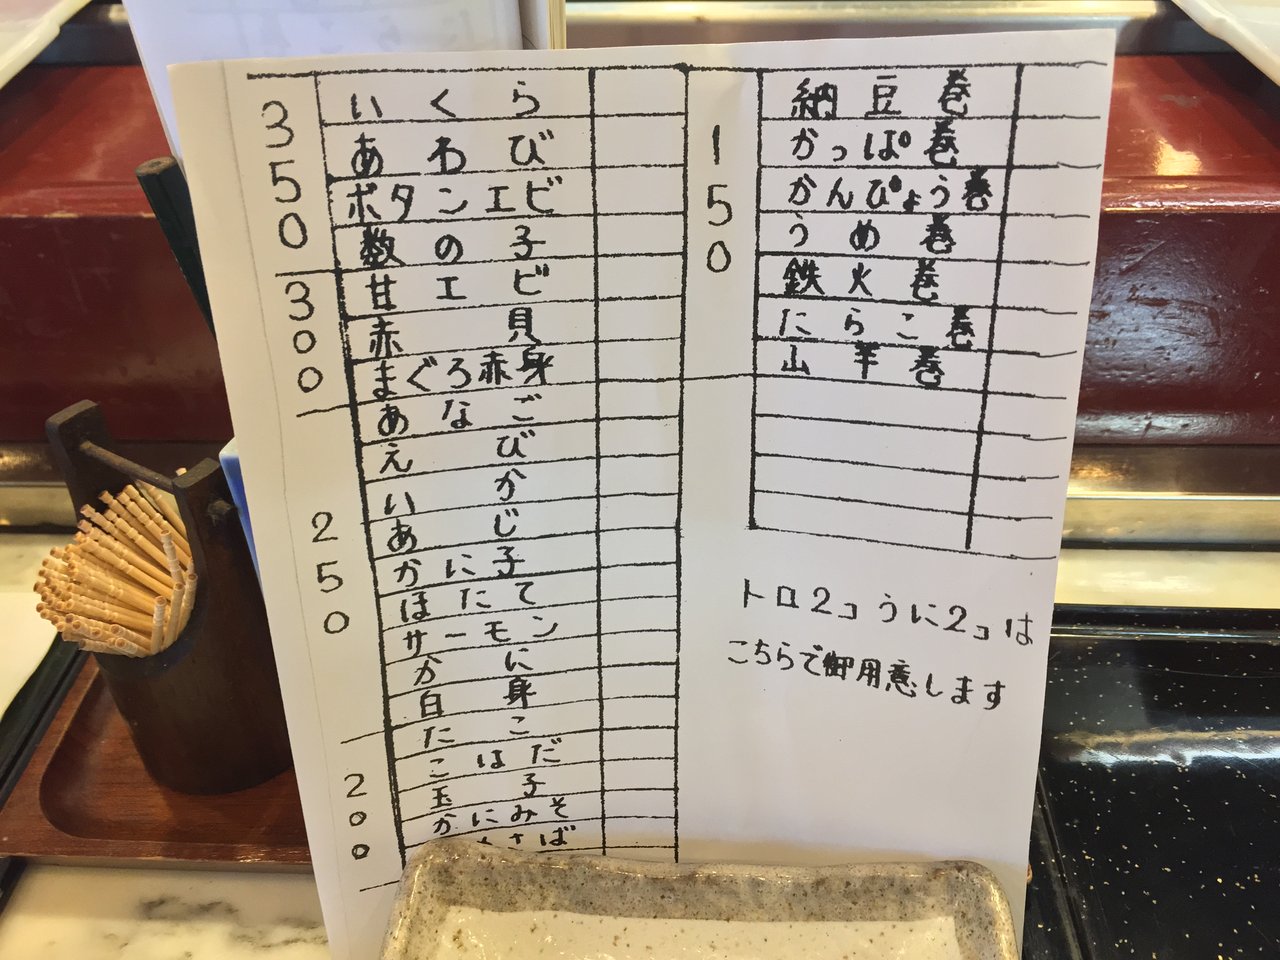 350
いくら
あわび
ボタンエビ
数の子
300
甘エビ
赤貝
まぐろ赤身
250
あなご
えび
いか
あじ
かに子
ほたて
サーモン
かに
白身
200
たこ
こはだ
玉子
かにみそ
さば
150
納豆巻
かっぱ巻
かんぴょう巻
うめ巻
鉄火巻
たらこ巻
山羊巻
トロ2コ うに2コは
こちらで御用意します